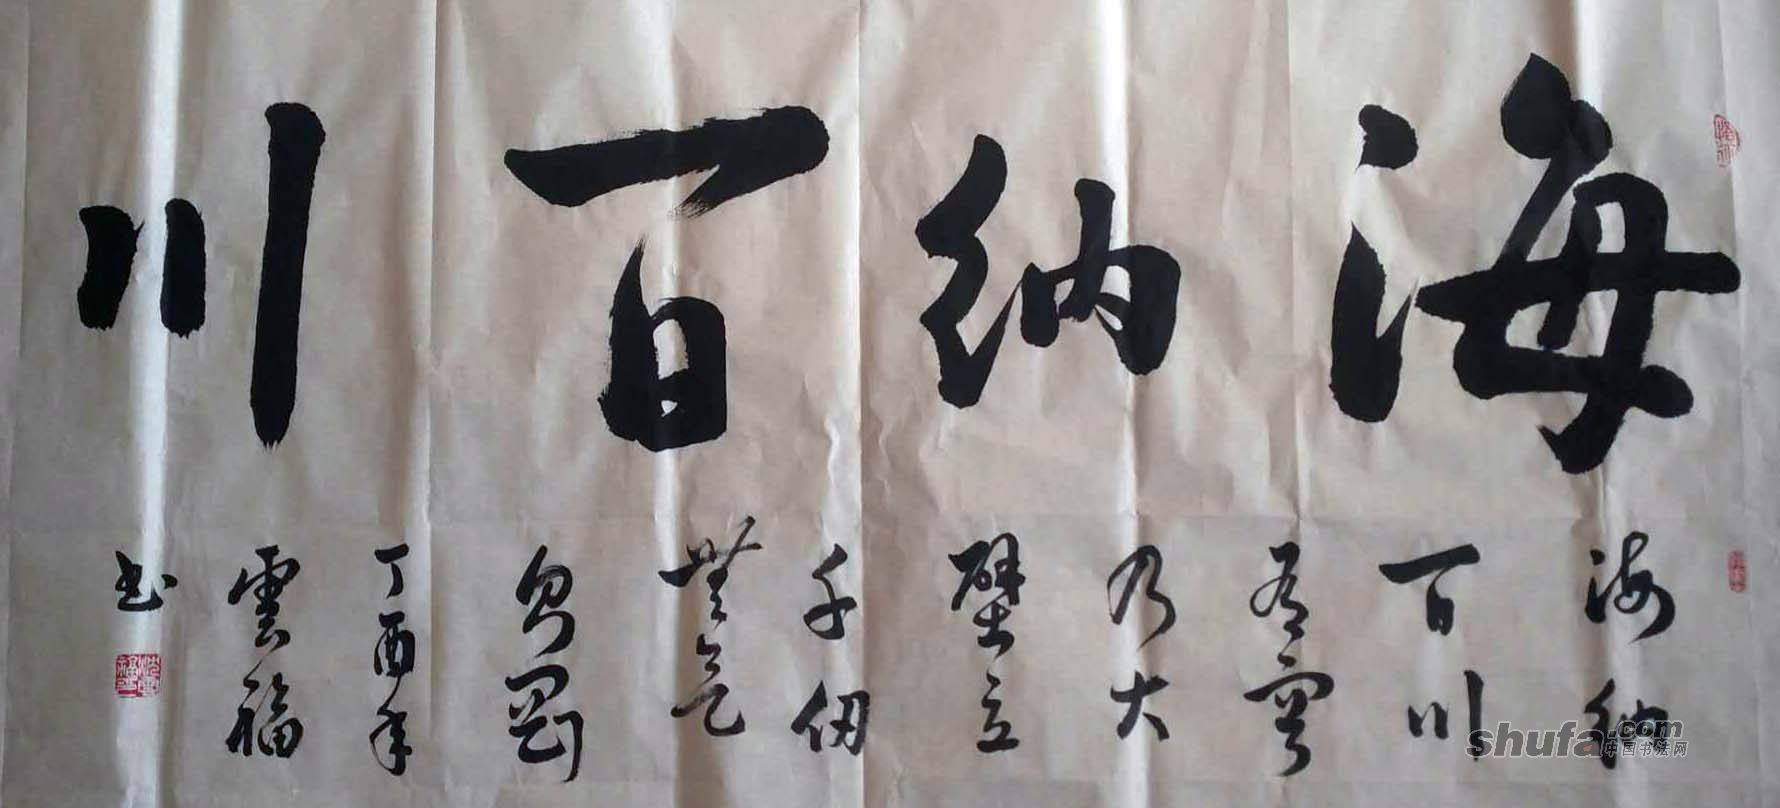 海纳百川
海纳
百川
有容
乃大
壁立
千仞
無欲
則剛
丁酉年
雲福
书
shufa.com
中国书法网